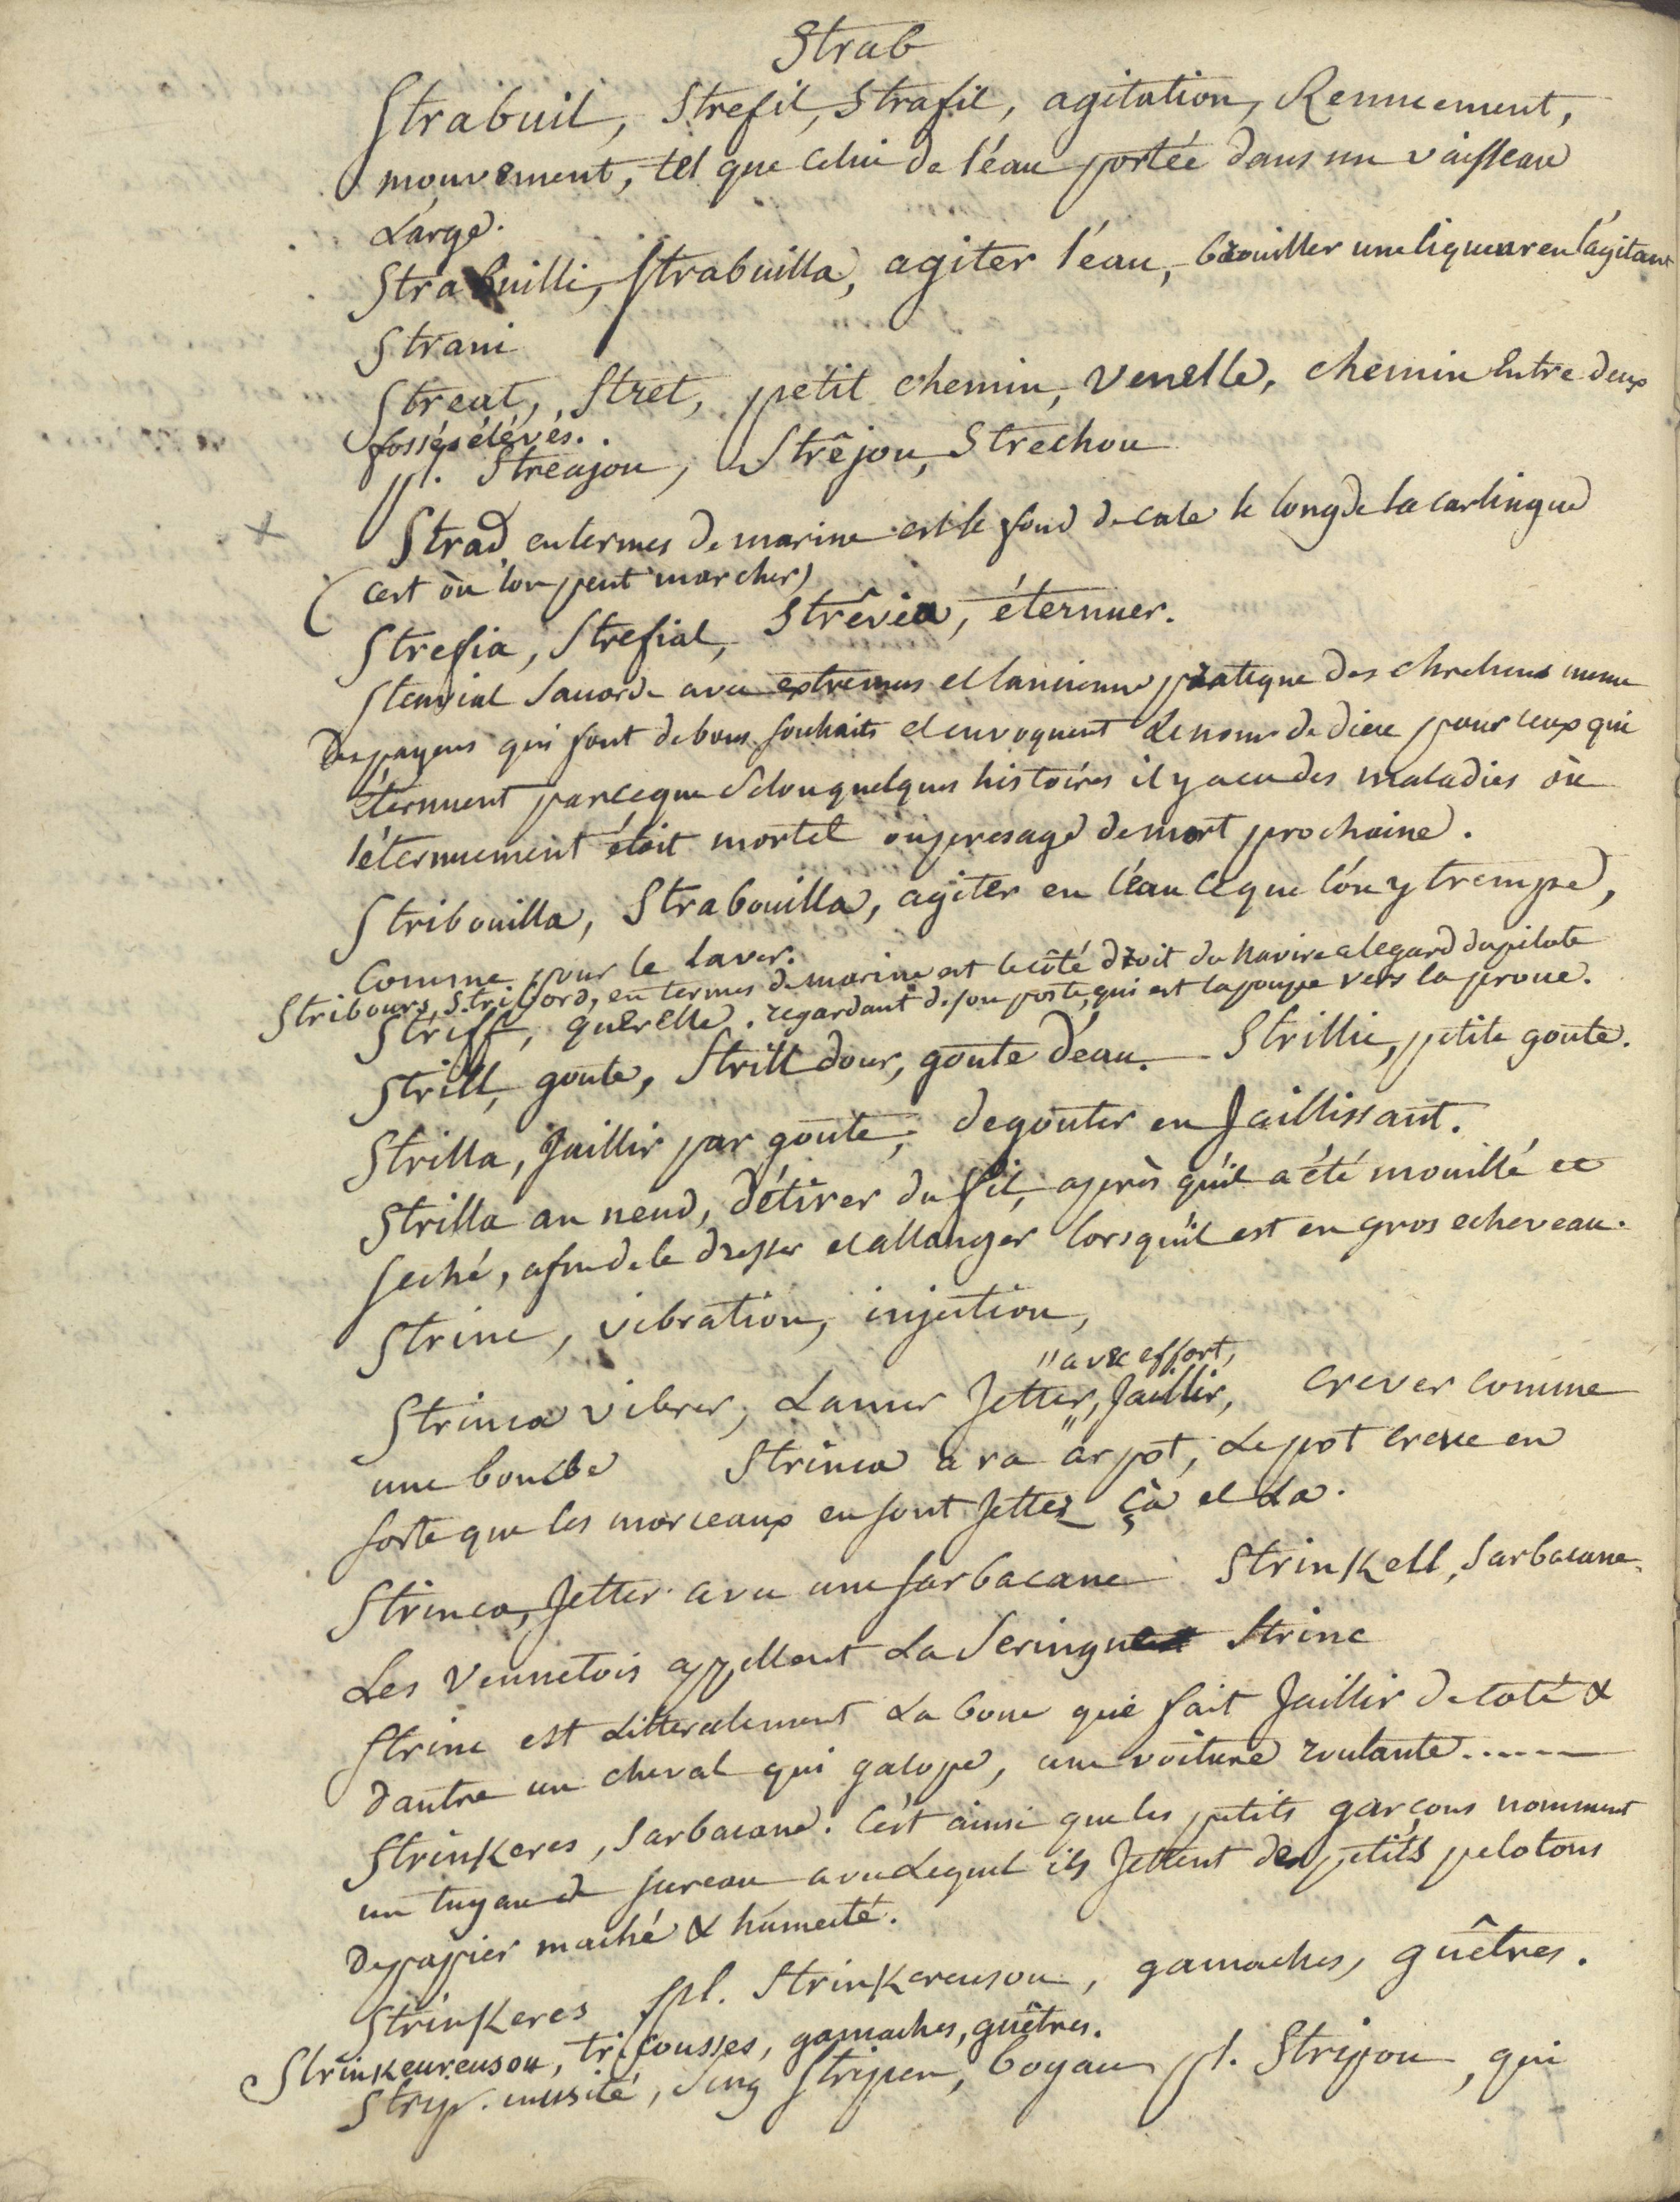 Strab
Strabuil, Strefil, Strafil, agitation, Remuement,
mouvement, tel que celui de l'éau portée dans un vaisseau
Large.
Strabuilli, Strabuilla, agiter l'éau, brouiller une liqueur en l'ágitant
Strani
Streat, Stret, petit chemin, venelle, chemin Entre deux
fossés élévés.
pl. Streajou, Strêjou, Strechou
Strad en termes de marine est le fond de cale le long de la carlingue
(cest òu l'on peut marcher)
Strefia, Strefial, Strêvia, éternuer.
Strevial Sauorde avec extremus et lancienne pratique des chretiens meme
des payens qui font de bons souhaits et envoquent Le nom de dieu pour ceux qui
éternuent parceque Selon quelques histoires il y a eu des maladies òu
l'éternuement étoit mortel ou presage de mort prochaine.
Stribouilla, Strabouilla, agiter en l'éau ce que l'on y trempe,
Comme pour le laver.
Stribours, Stribord, en termes de marine est le côté droit du Navire a legard du pilote
regardant de son poste, qui est la poupe vers la proue.
Striff, querelle.
Strill, goute, Strill dour, goute d'éau. Strillic, petite goute.
Strilla, Jaillir par goute, degouter en Jaillissant.
Strilla an neud, détirer du fil, après qu'il a été mouillé et
seché, afin de le dresser et allonger lorsqu'il est en gros echeveau.
Strinc, vibration, injection,
"avec effort,
Strinca vibrer, Lancer Jetter, Jaillir, crever comme
une bombe Strinca a ra ar pot, Le pot creve en
sorte que les morceaux en sont Jettez çà et La.
Strinca, Jetter avec une sarbacane Strinkell, Sarbacane.
Les Vennetois appellent La Seringue Strinc
Strinc est Litteralement La boue que fait Jaillir de coté &
dautre un cheval qui galope, une voiture roulante......
Strinkeres, Sarbacane. C'ést ainsi que les petits garçons nomment
un tuyau de sureau avec Lequel ils Jettent des petits pelotons
de papier maché & humecté.
Strinkeres pl. Strinkereusou, gamaches, guêtres.
Strinkeureusou, tricousses, gamaches, guêtres.
Strip. inusité, Sing Stripen, boyau pl. Stripou, qui